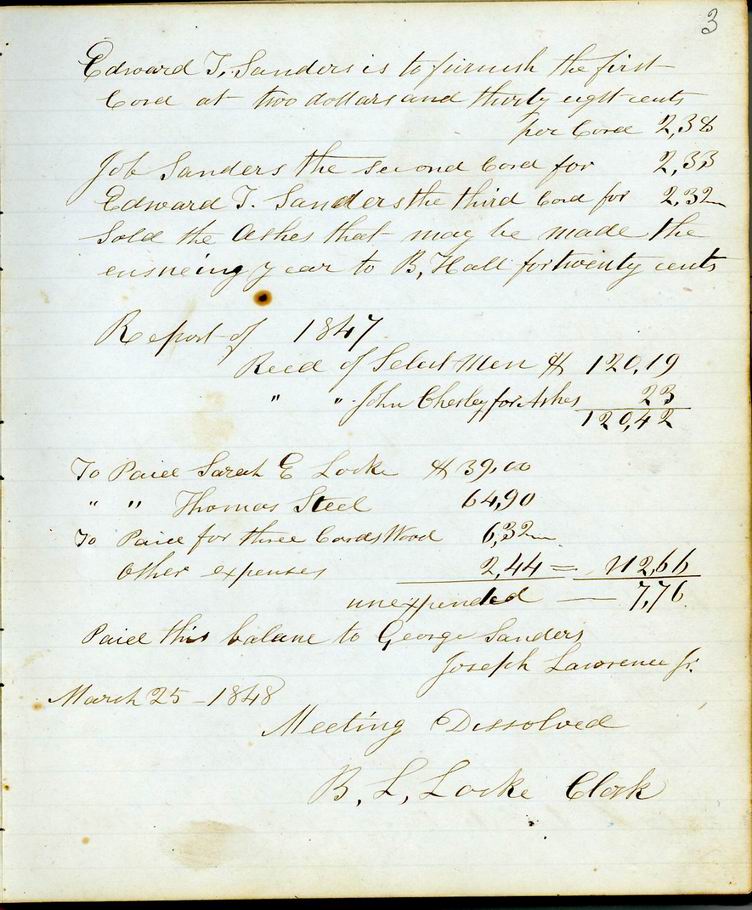 3
Edward T. Sanders is to furnish the first
Cord at two dollars and thirty eight cents
per Cord 2,38
Job Sanders the second Cord for 2,33
Edward T. Sanders the third Cord for 2,32
Sold the Ashes that may be made the
ensueing year to B, Hall for twenty cents
Report of 1847
Recd of Select Men $ 120,19
" " John Chesley for Ashes 23
120,42
To Paid Sarah E Locke $39,00
" " Thomas Steel 64,90
To Paid for three Cords Wood 6,32
Other expenses 2,44 = 112,66
unexpended — 7,76
Paid this balane to George Sanders
Joseph Lawrence Jr.
March 25 - 1848
Meeting Dissolved
B, L, Locke Clerk